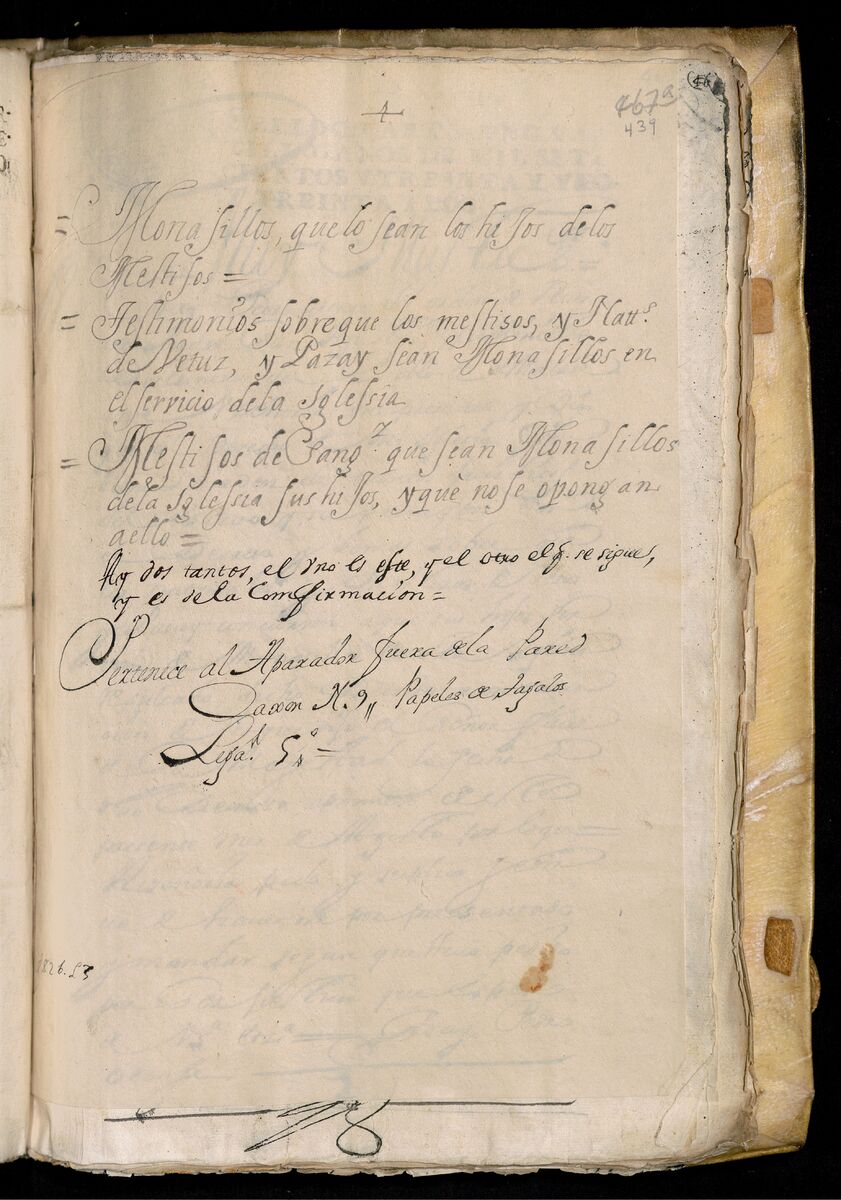 (46)
467a
439
1
= Monasillos, que lo sean los hijos de los
Mestisos =
= Testimonios sobre que los mestisos, y Natts.
de Vetuz, y Pazay sean Monasillos en
el servicio dela Iglessia
= Mestisos de Sang.r que sean Monasillos
dela Iglessia sus hijos, y què no se opongan
aello =
Ay dos tantos, el vno es este, y el otro el q. se sigue,
y es de la Comfirmacion =
Pertenece al Aparador fuera dela Pared
Caxon N. 9,, Papeles de
Lega.o 5,o =
1826. L3